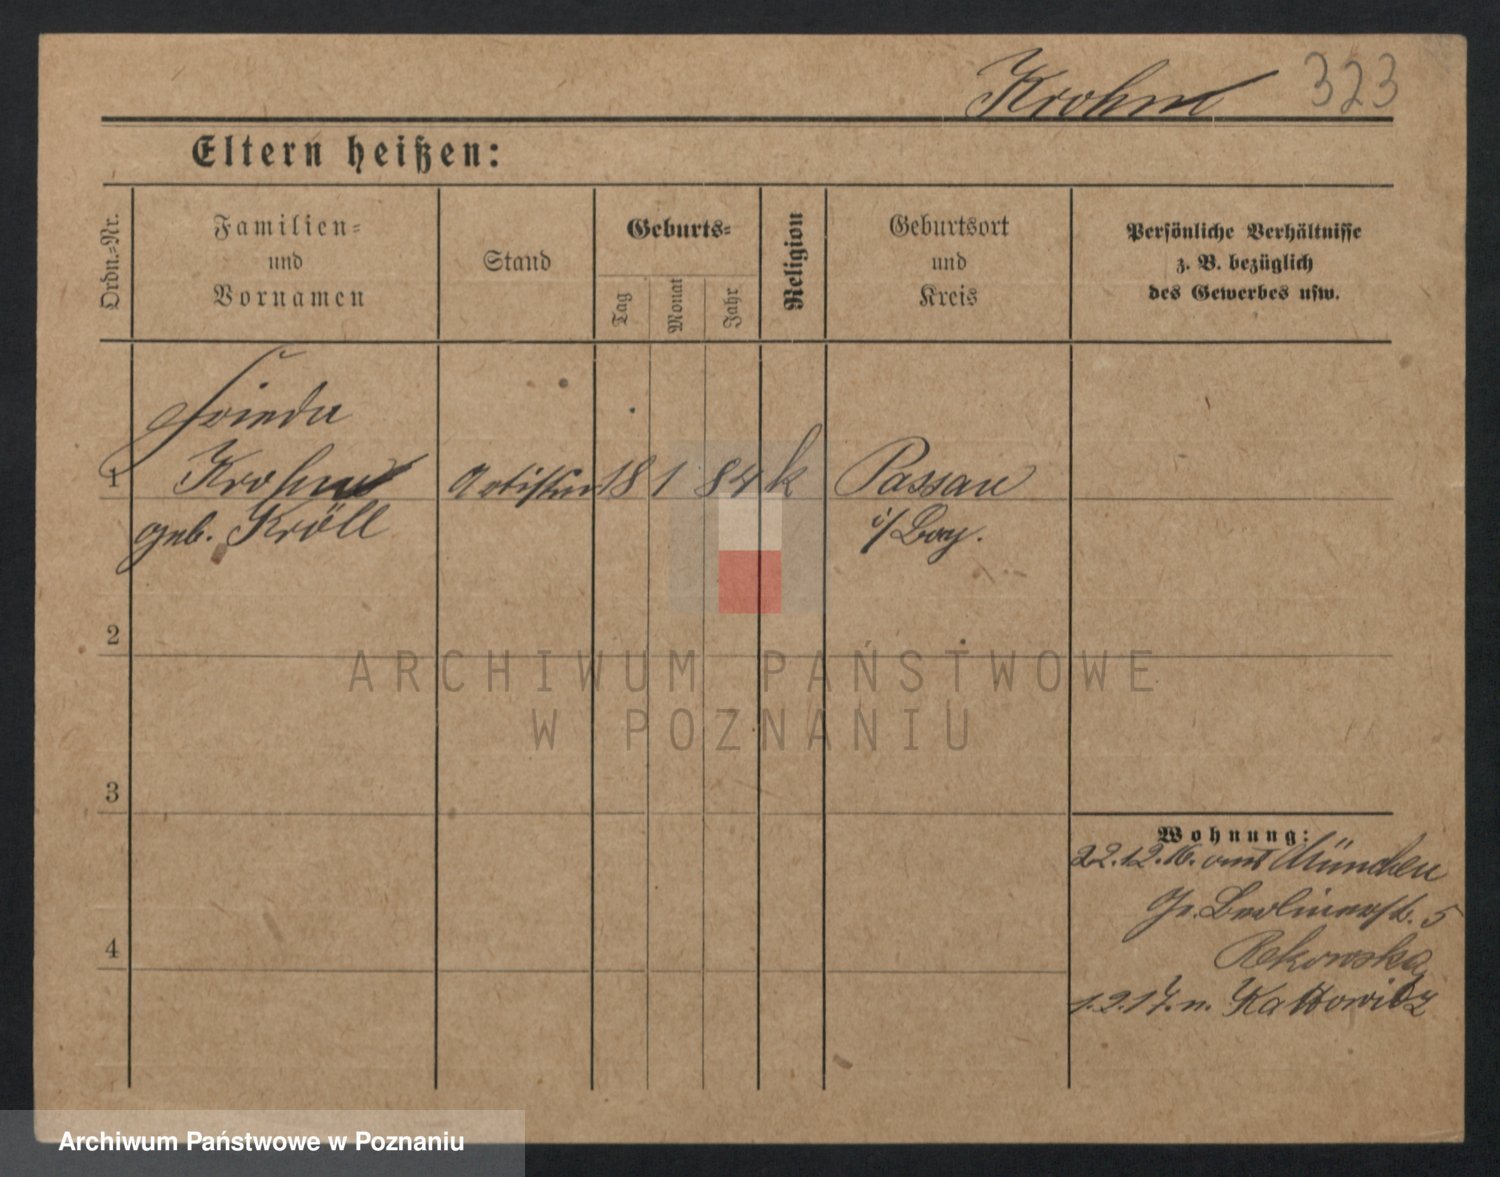 Krohm 323
Eltern heißen:
Ordn.-Nr.
Familien-
und
Vornamen
Stand
Geburts-
Tag
Monat
Jahr
Religion
Geburtsort
und
Kreis
Persönliche Verhältnisse
z. B. bezüglich
des Gewerbes usw.
Frieda
1 Krohm Artistin 18 1 84 k Passau
geb. Kröll i/Bay.
2
3
4
Wohnung:
22.12.16. aus München
Gr. Berlinerstr. 5
Rekowska
1.2.17. n. Kattowitz
ARCHIWUM PAŃSTWOWE
W POZNANIU
Archiwum Państwowe w Poznaniu